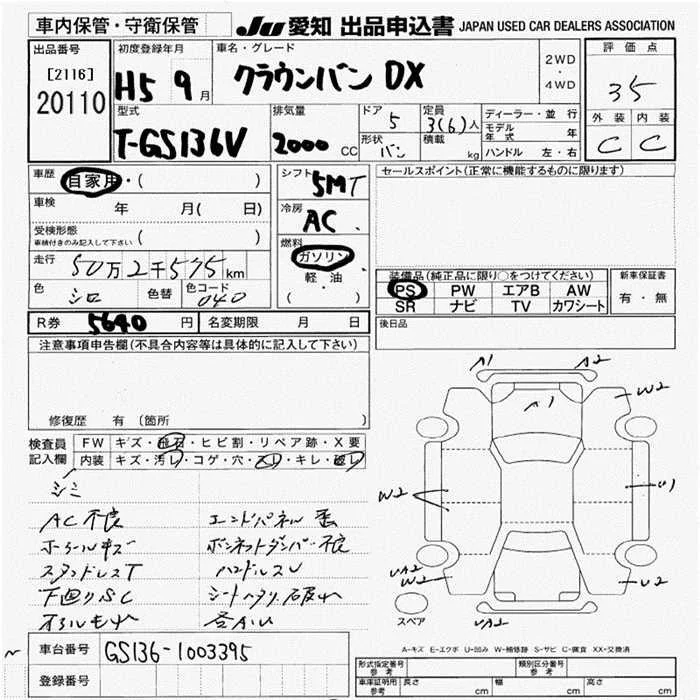 車内保管・守衛保管 JU 愛知 出品申込書 JAPAN USED CAR DEALERS ASSOCIATION
出品番号 初度登録年月 車名・グレード 2WD・4WD 評価点
[2116] 20110 H5 9月 クラウンバン DX 35
型式 排気量 ドア 定員 ディーラー・並行 外装 内装
T-GS136V 2000 CC 5 3(6)人 モデル年式 年 C C
形状 バン 積載 kg ハンドル 左・右
車歴 自家用・( ) シフト 5MT セールスポイント(正常に機能するものに限ります)
車検 年 月( 日) 冷房 AC
受検形態 ( )
車検付きのみ記入して下さい
燃料 ガソリン 軽油 ( )
走行 50万2千575km
色 シロ 色替 色コード 040
装備品(純正品に限り○をつけてください) 新車保証書
PS PW エアB AW 有・無
SR ナビ TV カワシート
R券 5640円 名変期限 月 日 後日品
注意事項申告欄(不具合内容等は具体的に記入して下さい)
修復歴 有 (箇所 )
検査員記入欄 FW キズ・飛石・ヒビ割・リペア跡・X要
内装 キズ・汚レ・コゲ・穴・スレ・キレ・破レ
A1 A2
A1 W2
W2 U1
UA2 W2 U2
UA2
スペア
シミ
AC不良 エンドパネル歪
ホイールキズ ボンネットダンパー不良
スタッドレスT ハンドルスレ
下回りSC シートヘタリ、破れ
各AU
A-キズ E-エクボ U-凹み W-補修跡 S-サビ C-腐食 XX-交換済
車台番号 GS136-1003395
登録番号
形式指定番号 参考 類別区分番号 参考
車庫証明用 参考 長さ cm 幅 cm 高さ cm